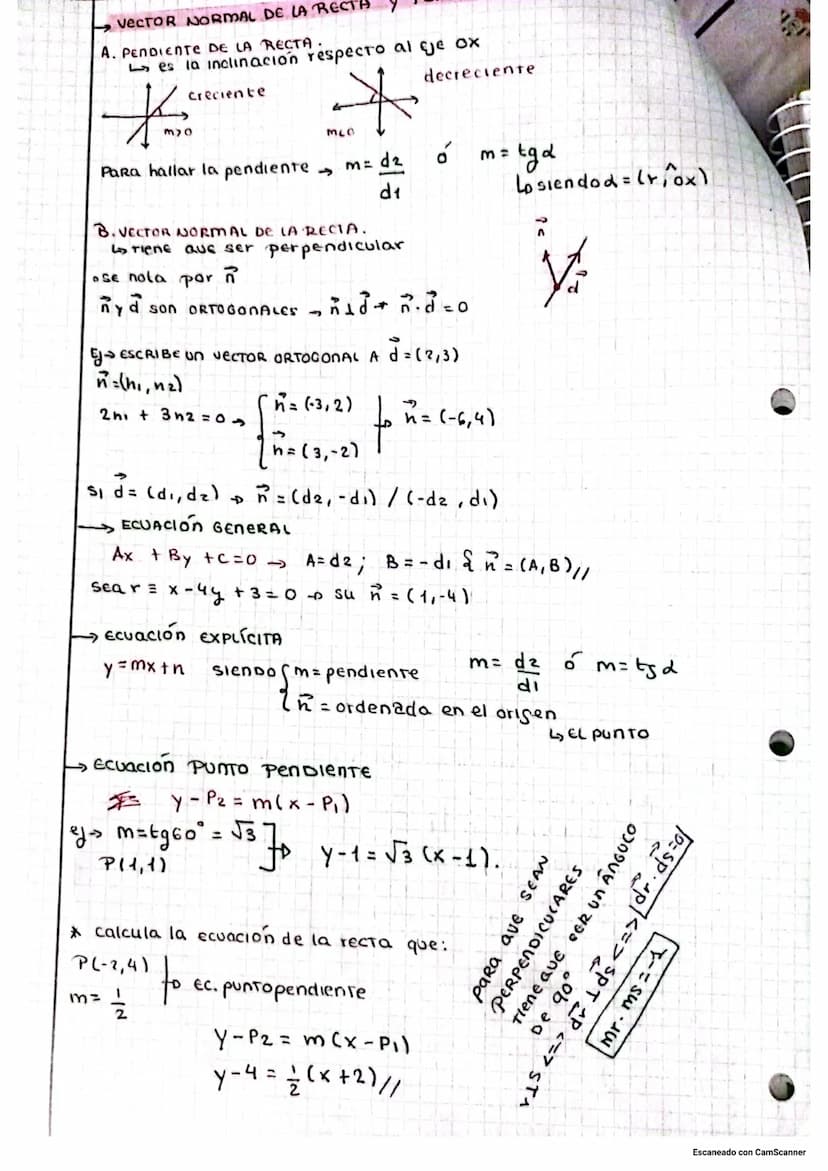 → VECTOR NORMAL DE LA RECTA Y
A. PENDIENTE DE LA RECTA.
↳ es la inclinación respecto al eje OX
creciente
m>0
decreciente
m<0
PARA hallar la pendiente → m = d2/d1 ó m = tgα
↳ siendo α = (r,^ox)
B. VECTOR NORMAL DE LA RECTA.
↳ TIENE QUE SER perpendicular
n⃗
d⃗
• SE nota por n⃗
n⃗ y d⃗ SON ORTOGONALES → n⃗ ⊥ d⃗ → n⃗ · d⃗ = 0
Ej → ESCRIBE UN VECTOR ORTOGONAL A d⃗ = (2,3)
n⃗ = (n1, n2)
2n1 + 3n2 = 0 → { n⃗ = (-3, 2)
n⃗ = (3, -2)
→ n⃗ = (-6, 4)
SI d⃗ = (d1, d2) → n⃗ = (d2, -d1) / (-d2, d1)
→ ECUACIÓN GENERAL
Ax + By + C = 0 → A = d2 ; B = -d1 { n⃗ = (A, B) //
sea r ≡ x - 4y + 3 = 0 → su n⃗ = (1, -4)
→ ECUACIÓN EXPLÍCITA
y = mx + n SIENDO { m = pendiente m = d2/d1 ó m = tg α
n⃗ = ordenada en el origen
↳ EL PUNTO
→ ECUACIÓN PUNTO PENDIENTE
y - P2 = m(x - P1)
ej → m = tg60° = √3
P(1,1)
] → y - 1 = √3 (x - 1).
* calcula la ecuación de la recta que:
P(-2,4)
m = 1/2
} → ec. punto pendiente
y - P2 = m(x - P1)
y - 4 = 1/2 (x + 2) //
PARA QUE SEAN
PERPENDICULARES
TIENE QUE SER UN ÁNGULO
DE 90°
r ⊥ s <=> d⃗r ⊥ d⃗s <=> d⃗r · d⃗s = 0
mr · ms = -1
Escaneado con CamScanner